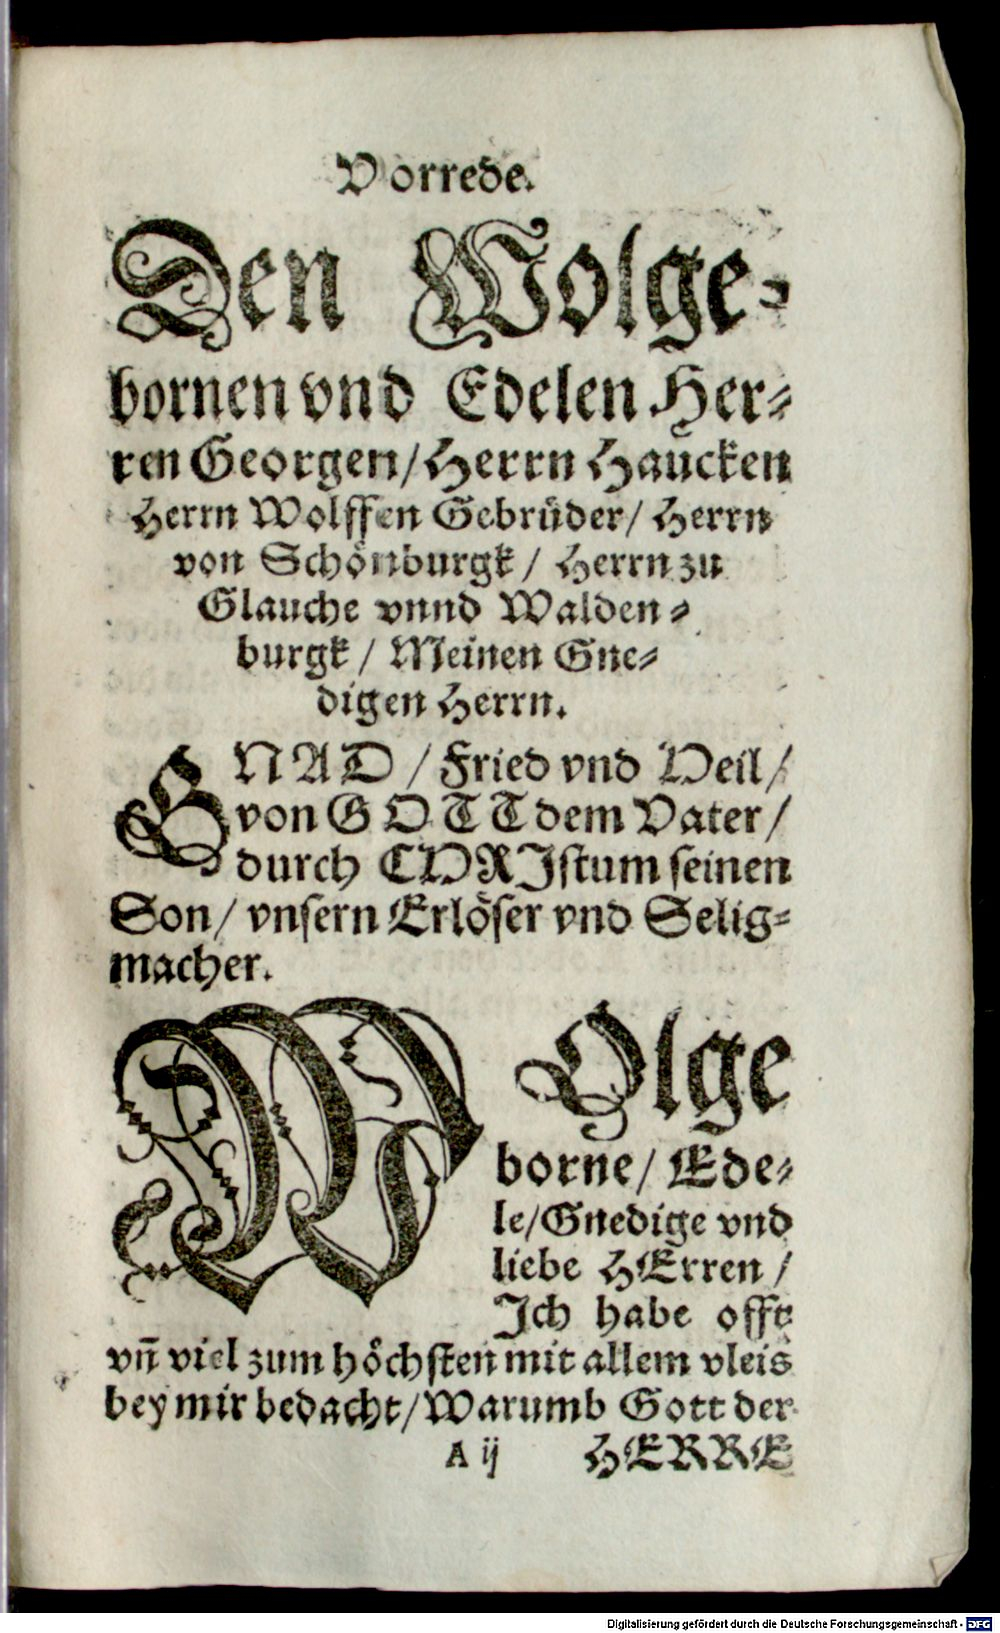 Vorrede.
Den Wolge-
bornen vnd Edelen Her-
ren Georgen/Herrn Haucken
Herrn Wolffen Gebrüder/ Herrn
von Schönburgk / Herrn zu
Glauche vnnd Walden-
burgk / Meinen Gne-
digen Herrn.
GNAD / Fried vnd Heil /
von GOTT dem Vater /
durch CHRIstum seinen
Son/ vnsern Erlöser vnd Selig-
macher.
WOlge
borne/ Ede-
le/Gnedige vnd
liebe HErren /
Ich habe offt
vn̄ viel zum höchsten mit allem vleis
bey mir bedacht/Warumb Gott der
A ij HERRE
Digitalisierung gefördert durch die Deutsche Forschungsgemeinschaft - DFG